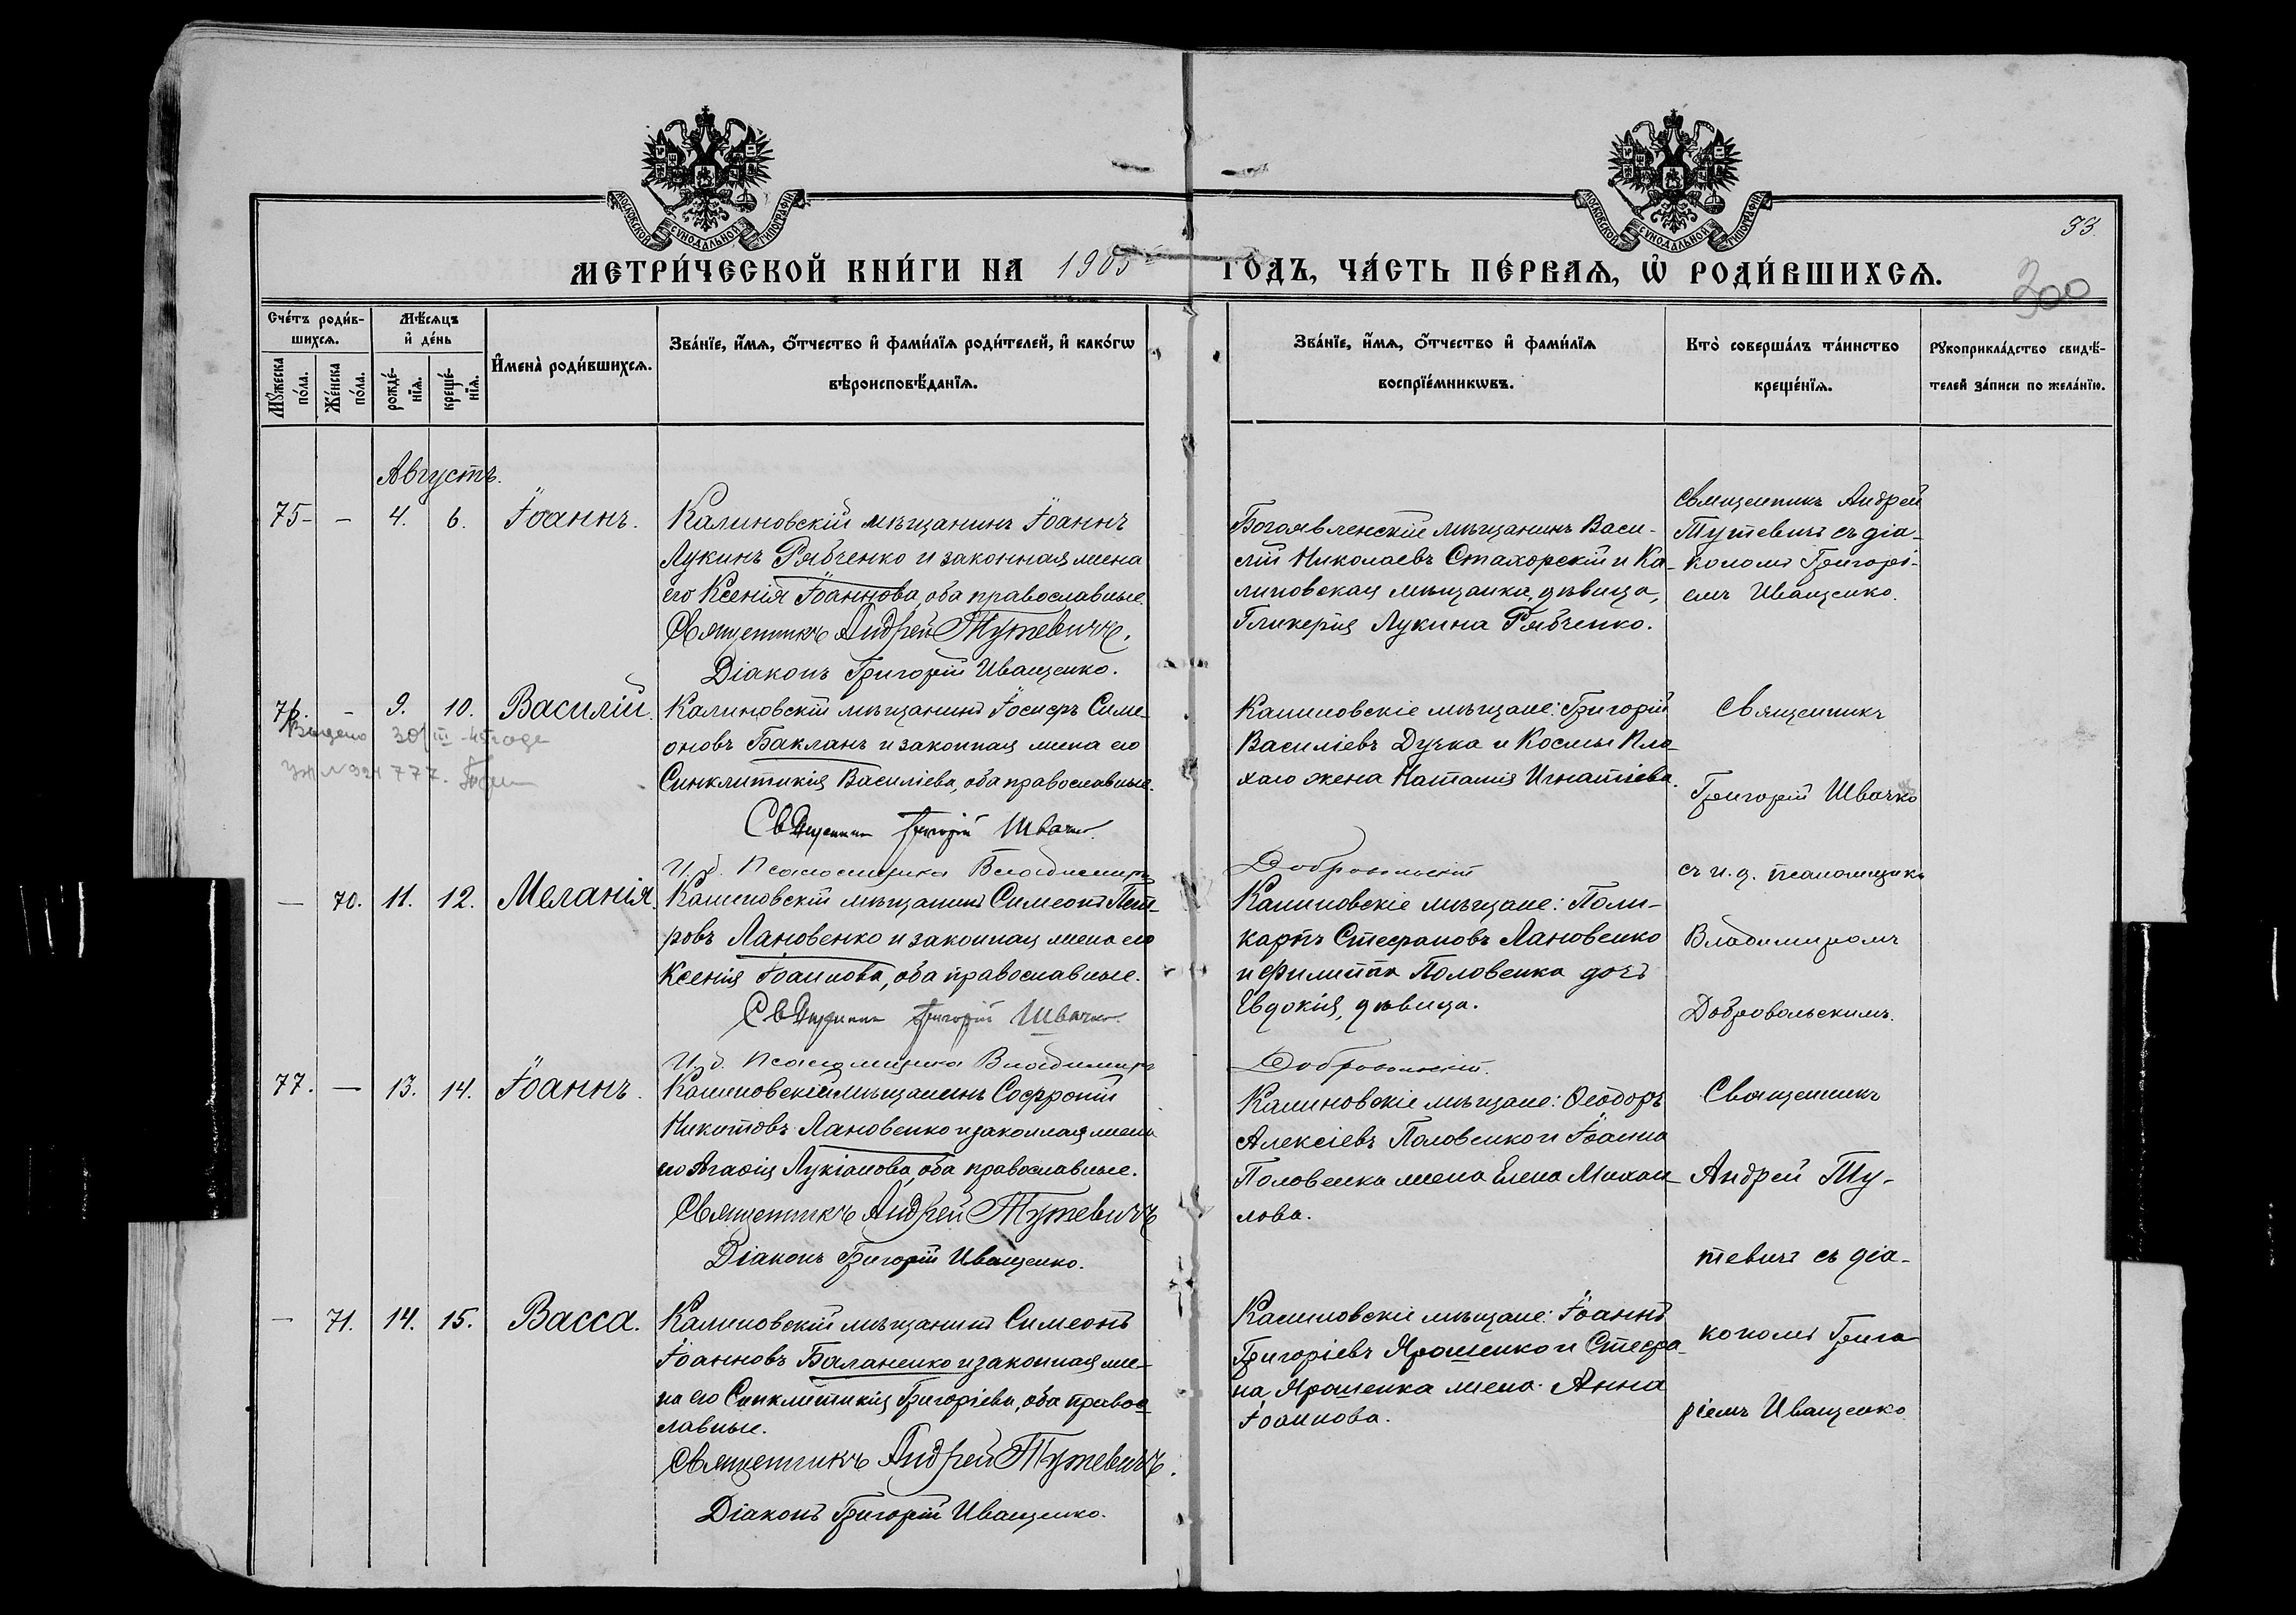 МОСКОВСКОЙ СУНОДАЛЬНОЙ ТИПОГРАФІИ
МОСКОВСКОЙ СУНОДАЛЬНОЙ ТИПОГРАФІИ
33.
МЕТРИ́ЧЕСКОЙ КНИ́ГИ НА 1905 ГОДЪ, ЧА́СТЬ ПЕ́РВАѦ, Ѡ҆ РОДИ́ВШИХСѦ.
300
Сче́тъ роди́в-
шихсѧ.
Мѣ́сѧцъ
и҆ де́нь
Мꙋ́жеска
по́ла.
Же́нска
по́ла.
рожде́-
нїѧ.
креще́-
нїѧ.
И҆мена̀ роди́вшихсѧ.
Зва́нїе, и҆́мѧ, ѻ҆́тчество и҆ фами́лїѧ роди́телей, и҆ како́гѡ
вѣроисповѣ́данїѧ.
Зва́нїе, и҆́мѧ, ѻ҆́тчество и҆ фами́лїѧ
воспрїе́мникѡвъ.
Кто̀ соверша́лъ та́инство
креще́нїѧ.
Рꙋкоприкла́дство свидѣ́-
телей за́писи по жела́нїю.
Августъ.
75 - - 4. 6. Іоаннъ.
Калиновскій мѣщанинъ Іоаннъ
Лукинъ Рябченко и законная жена
его Ксенія Іоаннова, оба православные.
Священникъ Андрей Тутевичъ.
Діаконъ Григорій Иващенко.
Богоявленскій мѣщанинъ Васи-
лій Николаевъ Стахорскій и Ка-
линовская мѣщанка, дѣвица,
Гликерія Лукина Рябченко.
Священникъ Андрей
Тутевичъ съ діа-
кономъ Григорі-
емъ Иващенко.
76 - 9. 10. Василій.
30/III - 45 года
777.
Калиновскій мѣщанинъ Іосифъ Симе-
оновъ Бакланъ и законная жена его
Синклитикія Василіева, оба православные.
Священникъ Григорій Швачко.
И. д. Псаломщика Владимиръ Добровольскій
Калиновскіе мѣщане: Григорій
Василіевъ Дучка и Космы Пла-
хаго жена Наталія Игнатіева.
Священникъ
Григорій Швачко
съ и. д. псаломщика
Владимиромъ
Добровольскимъ.
— 70. 11. 12. Меланія.
Калиновскій мѣщанинъ Симеонъ Пет-
ровъ Лановенко и законная жена его
Ксенія Іоаннова, оба православные.
Священникъ Григорій Швачко.
И. д. Псаломщика Владимиръ Добровольскій.
Калиновскіе мѣщане: Поли-
карпъ Стефановъ Лановенко
и Филиппа Половенка дочь
Евдокія, дѣвица.
77. — 13. 14. Іоаннъ.
Калиновскій мѣщанинъ Софроній
Никитовъ Лановенко и законная жена
его Агаѳія Лукіанова, оба православные.
Священникъ Андрей Тутевичъ
Діаконъ Григорій Иващенко.
Калиновскіе мѣщане: Ѳеодоръ
Алексіевъ Половенко и Іоанна
Половенка жена Елена Михаи-
лова.
Священникъ
Андрей Ту-
тевичъ съ діа-
кономъ Григо
ріемъ Иващенко
— 71. 14. 15. Васса.
Калиновскій мѣщанинъ Симеонъ
Іоанновъ Баланенко и законная же-
на его Синклитикія Григоріева, оба правос
лавные.
Священникъ Андрей Тутевичъ.
Діаконъ Григорій Иващенко.
Калиновскіе мѣщане: Іоаннъ
Григоріевъ Ярошенко и Стефа-
на Ярошенка жена Анна
Іоаннова.